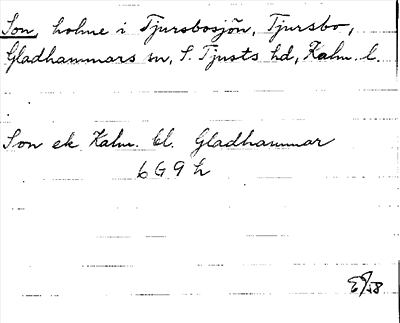 Son, holme i Tjursbosjön, Tjursbo,
Gladhammars sn, S. Tjusts hd, Kalm. l.
Son ek Kalm. bl. Gladhammar
6 G 9 h